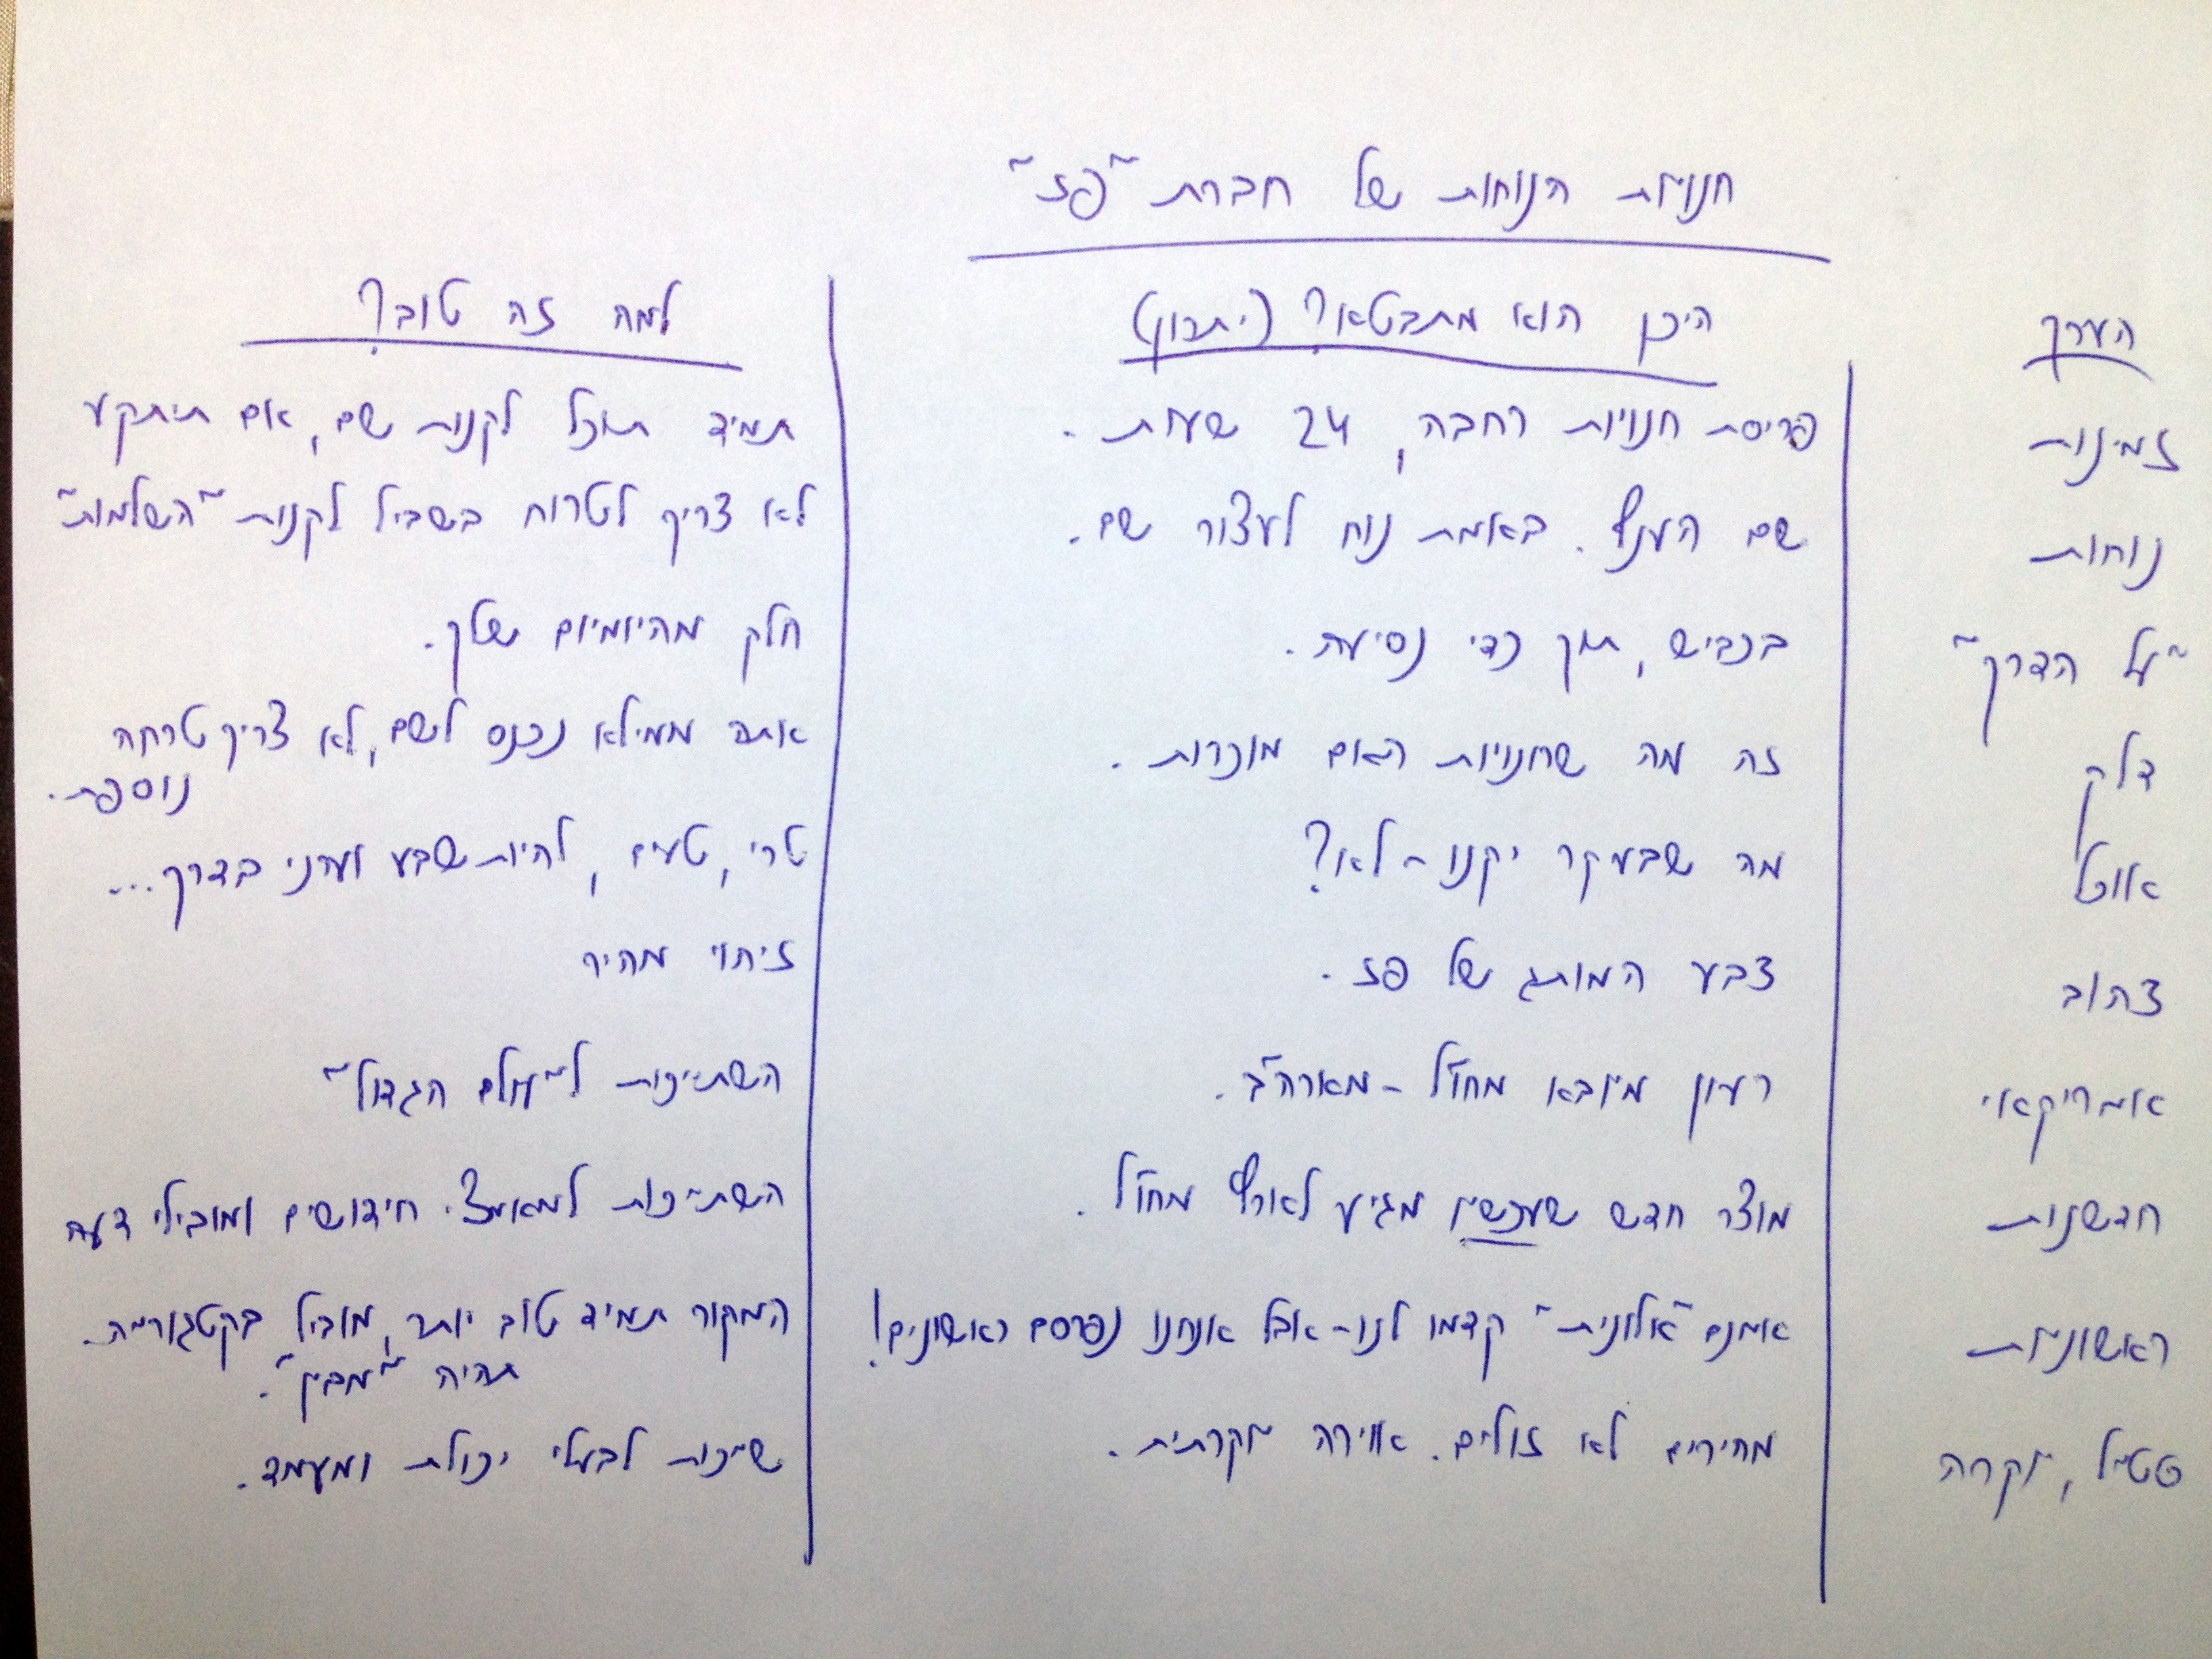 חנויות הנוחות של חברת "פז"
הערך
היכן הוא מתבטא? (יתרון)
למה זה טוב?
זמינות
פריסת חנויות רחבה, 24 שעות.
תמיד תוכל לקנות שם, אם תיתקע
נוחות
שם הענף. באמת נוח לעצור שם.
לא צריך לטרוח בשביל לקנות "השלמות"
"על הדרך"
בכביש, תוך כדי נסיעה.
חלק מהיומיום שלך.
דלק
זה מה שחנויות האם מוכרות.
אתה ממילא נכנס לשם, לא צריך טרחה
נוספת.
אוכל
מה שבעקר יקנו - לא?
טרי, טעים, להיות שבע וערני בדרך...
צהוב
צבע המותג של פז.
זיהוי מהיר
אמריקאי
רעיון מיובא מחו"ל - מארה"ב.
השתייכות ל"עולם הגדול"
חדשנות
מוצר חדש שעכשיו מגיע לארץ מחו"ל.
השתייכות למאמצי חידושים ומובילי דעה
ראשוניות
אמנם "אלונית" קדמו לנו - אבל אנחנו נפרסם ראשונים!
המקור תמיד טוב יותר, מוביל בקטגוריה.
תהיה "מבין".
סטייל, יוקרה
מחירים לא זולים. אווירה יוקרתית.
שייכות לבעלי יכולת ומעמד.